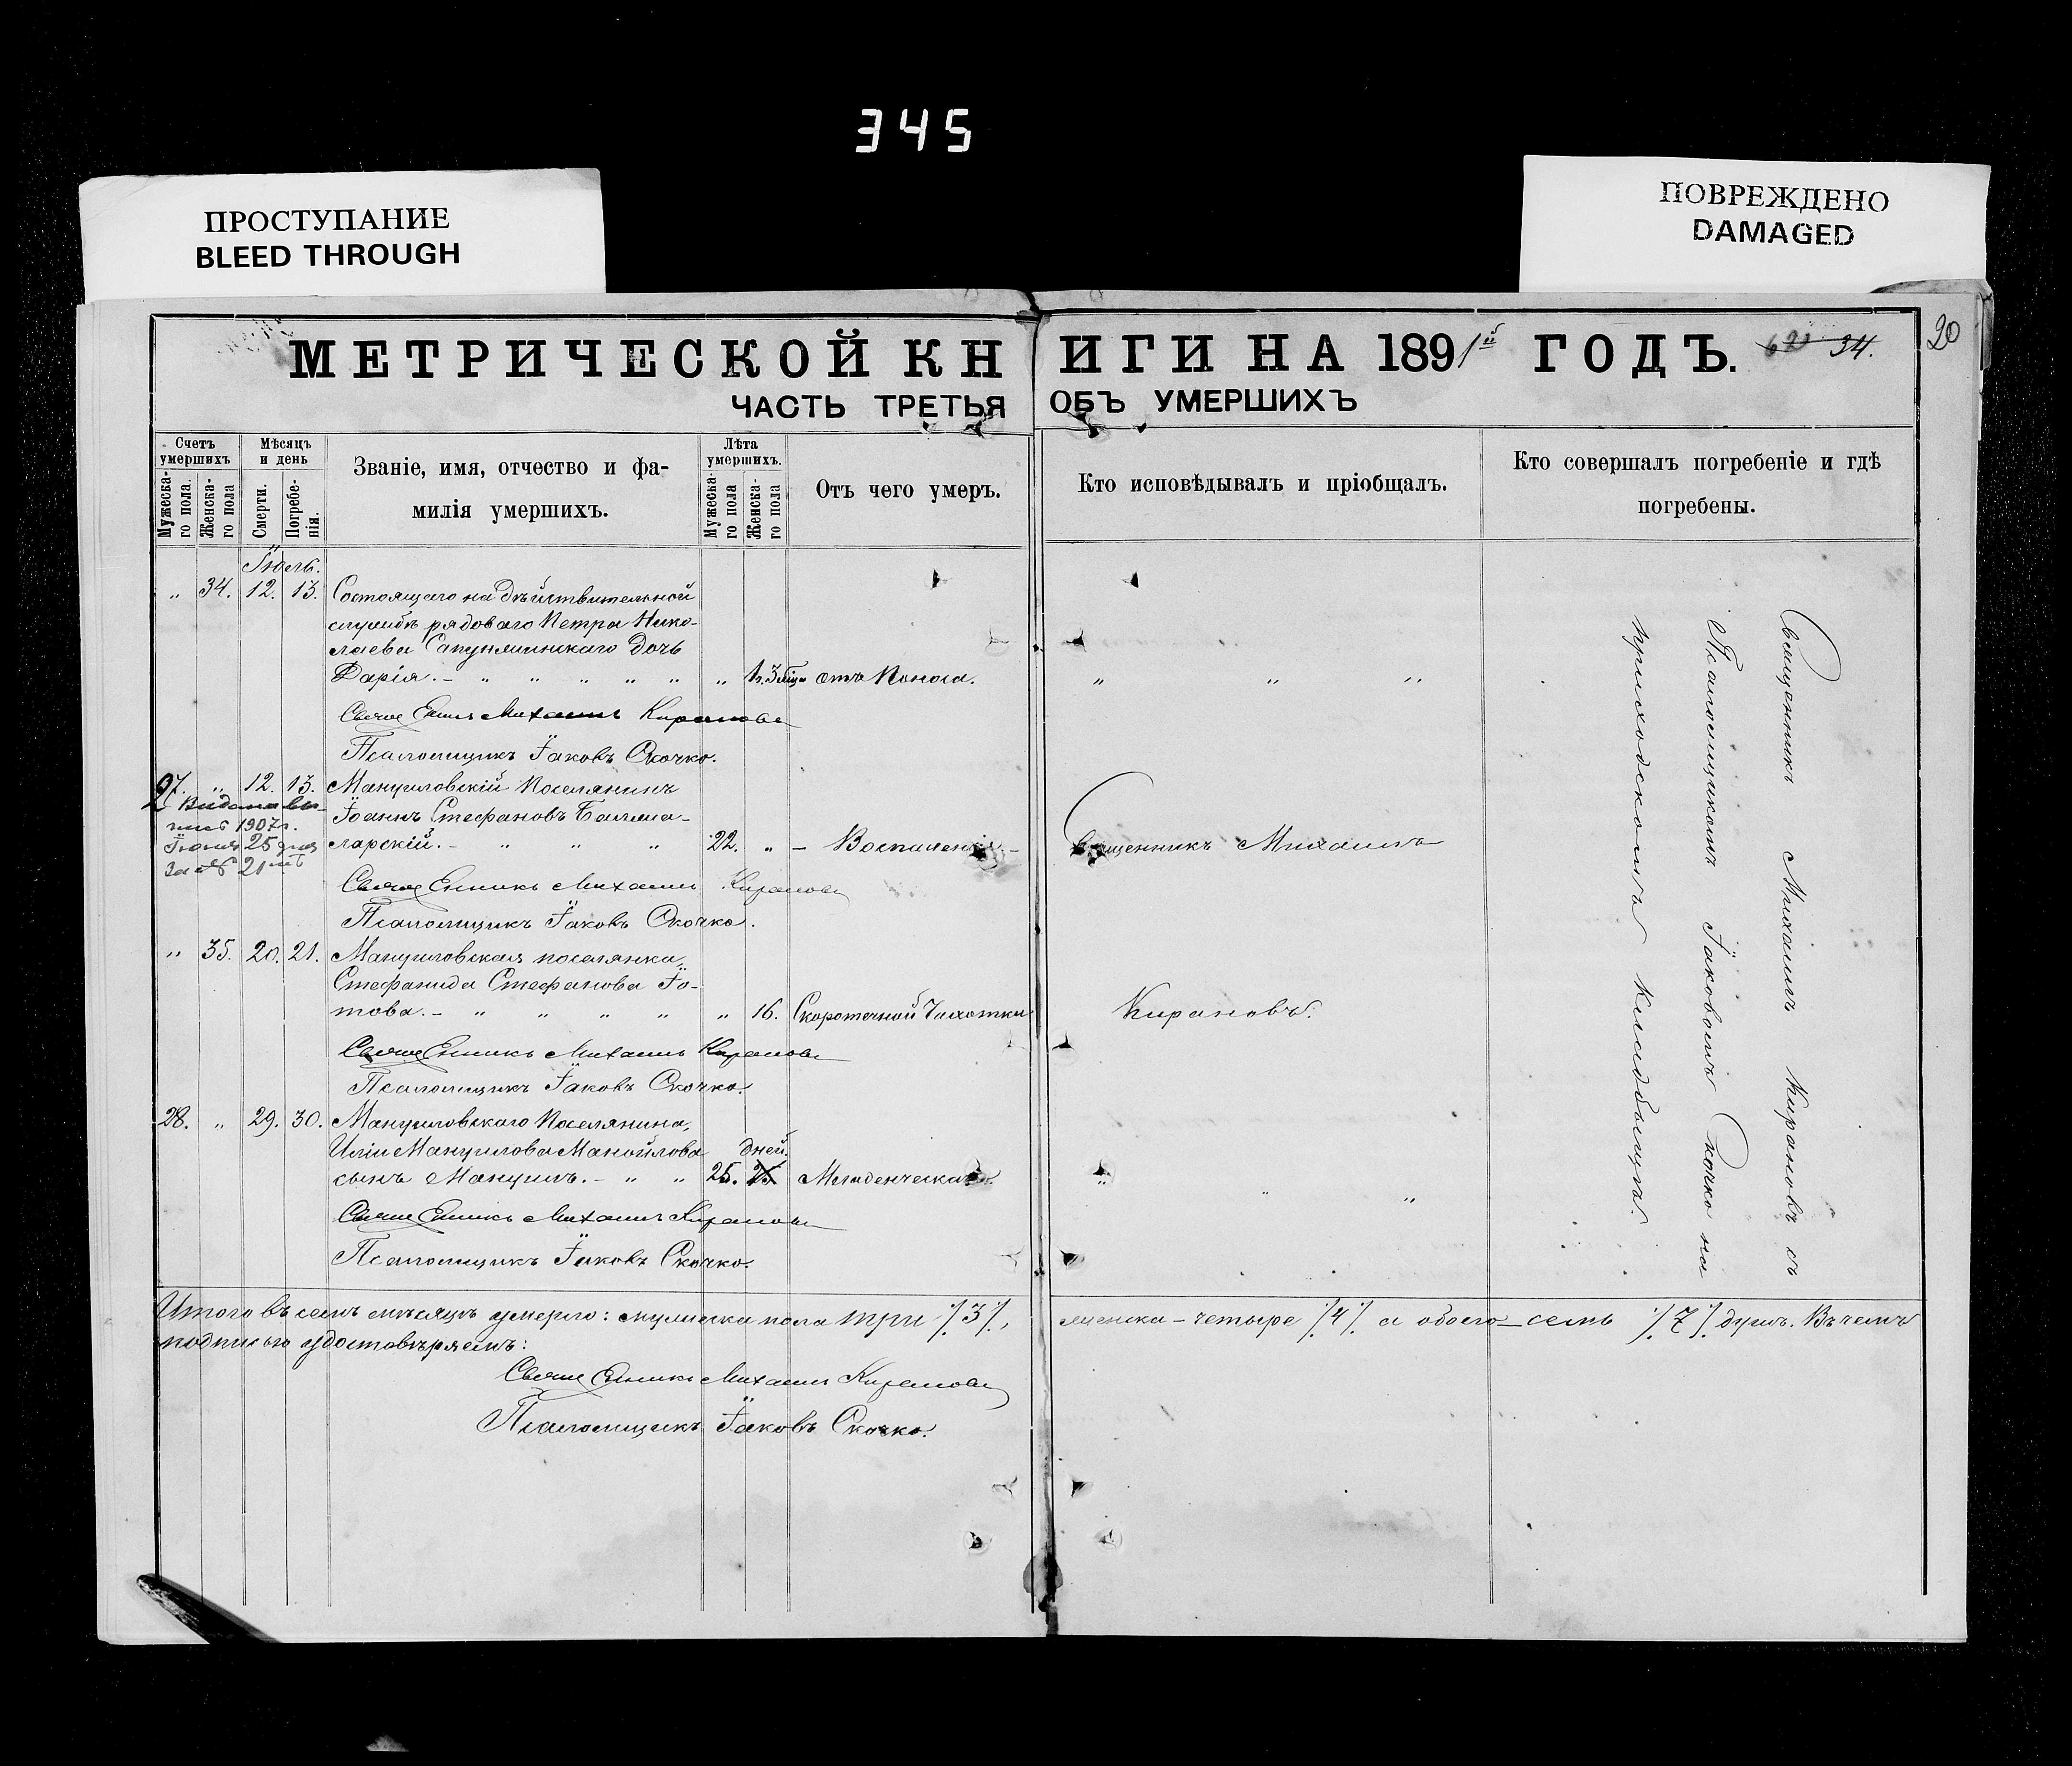 345
ПРОСТУПАНИЕ
BLEED THROUGH
ПОВРЕЖДЕНО
DAMAGED
МЕТРИЧЕСКОЙ КНИГИ НА 1891й ГОДЪ.
34.
20
ЧАСТЬ ТРЕТЬЯ ОБЪ УМЕРШИХЪ
Счетъ умершихъ
Мужеска-го пола.
Женска-го пола
Мѣсяцъ и день
Смерти.
Погребе-нія.
Званіе, имя, отчество и фа-
милія умершихъ.
Лѣта умершихъ.
Мужеска-го пола
Женска-го пола
Отъ чего умеръ.
Кто исповѣдывалъ и пріобщалъ.
Кто совершалъ погребеніе и гдѣ
погребены.
Іюль.
" 34. 12. 13. Состоящаго на дѣйствительной
службѣ рядоваго Петра Нико-
лаева дочь
Дарія. – " " " " " " отъ Поноса. " " "
Священникъ Михаилъ Кирановъ
Псаломщикъ Іаковъ Скочко.
27. " 12. 13. Мануиловскій Поселянинъ
Іоаннъ Стефановъ
ларскій. – " " " 22. " – Воспаленія – Священникъ Михаилъ
1907 г.
Іюня 25 дня
За № 21
Священникъ Михаилъ Кирановъ
Псаломщикъ Іаковъ Скочко.
" 35. 20. 21. Мануиловская поселянка,
Стефанида Стефанова Іо-
това. – " " " " " 16. Скоротечной Чахотки Кирановъ.
Священникъ Михаилъ Кирановъ
Псаломщикъ Іаковъ Скочко.
28. " 29. 30. Мануиловскаго Поселянина,
Иліи Мануилова Манойлова дней.
сынъ Мануилъ. – " " 25. Младенческая " " "
Священникъ Михаилъ Кирановъ
Псаломщикъ Іаковъ Скочко.
Священникъ Михаилъ Кирановъ съ
Псаломщикомъ Іаковомъ Скочко на
приходскомъ кладбищѣ.
Итого въ семъ мѣсяцѣ умерло: мужеска пола три /3/, женска – четыре /4/ а обоего – семь /7/ душъ. Въ чемъ
подписью удостовѣряемъ:
Священникъ Михаилъ Кирановъ
Псаломщикъ Іаковъ Скочко.